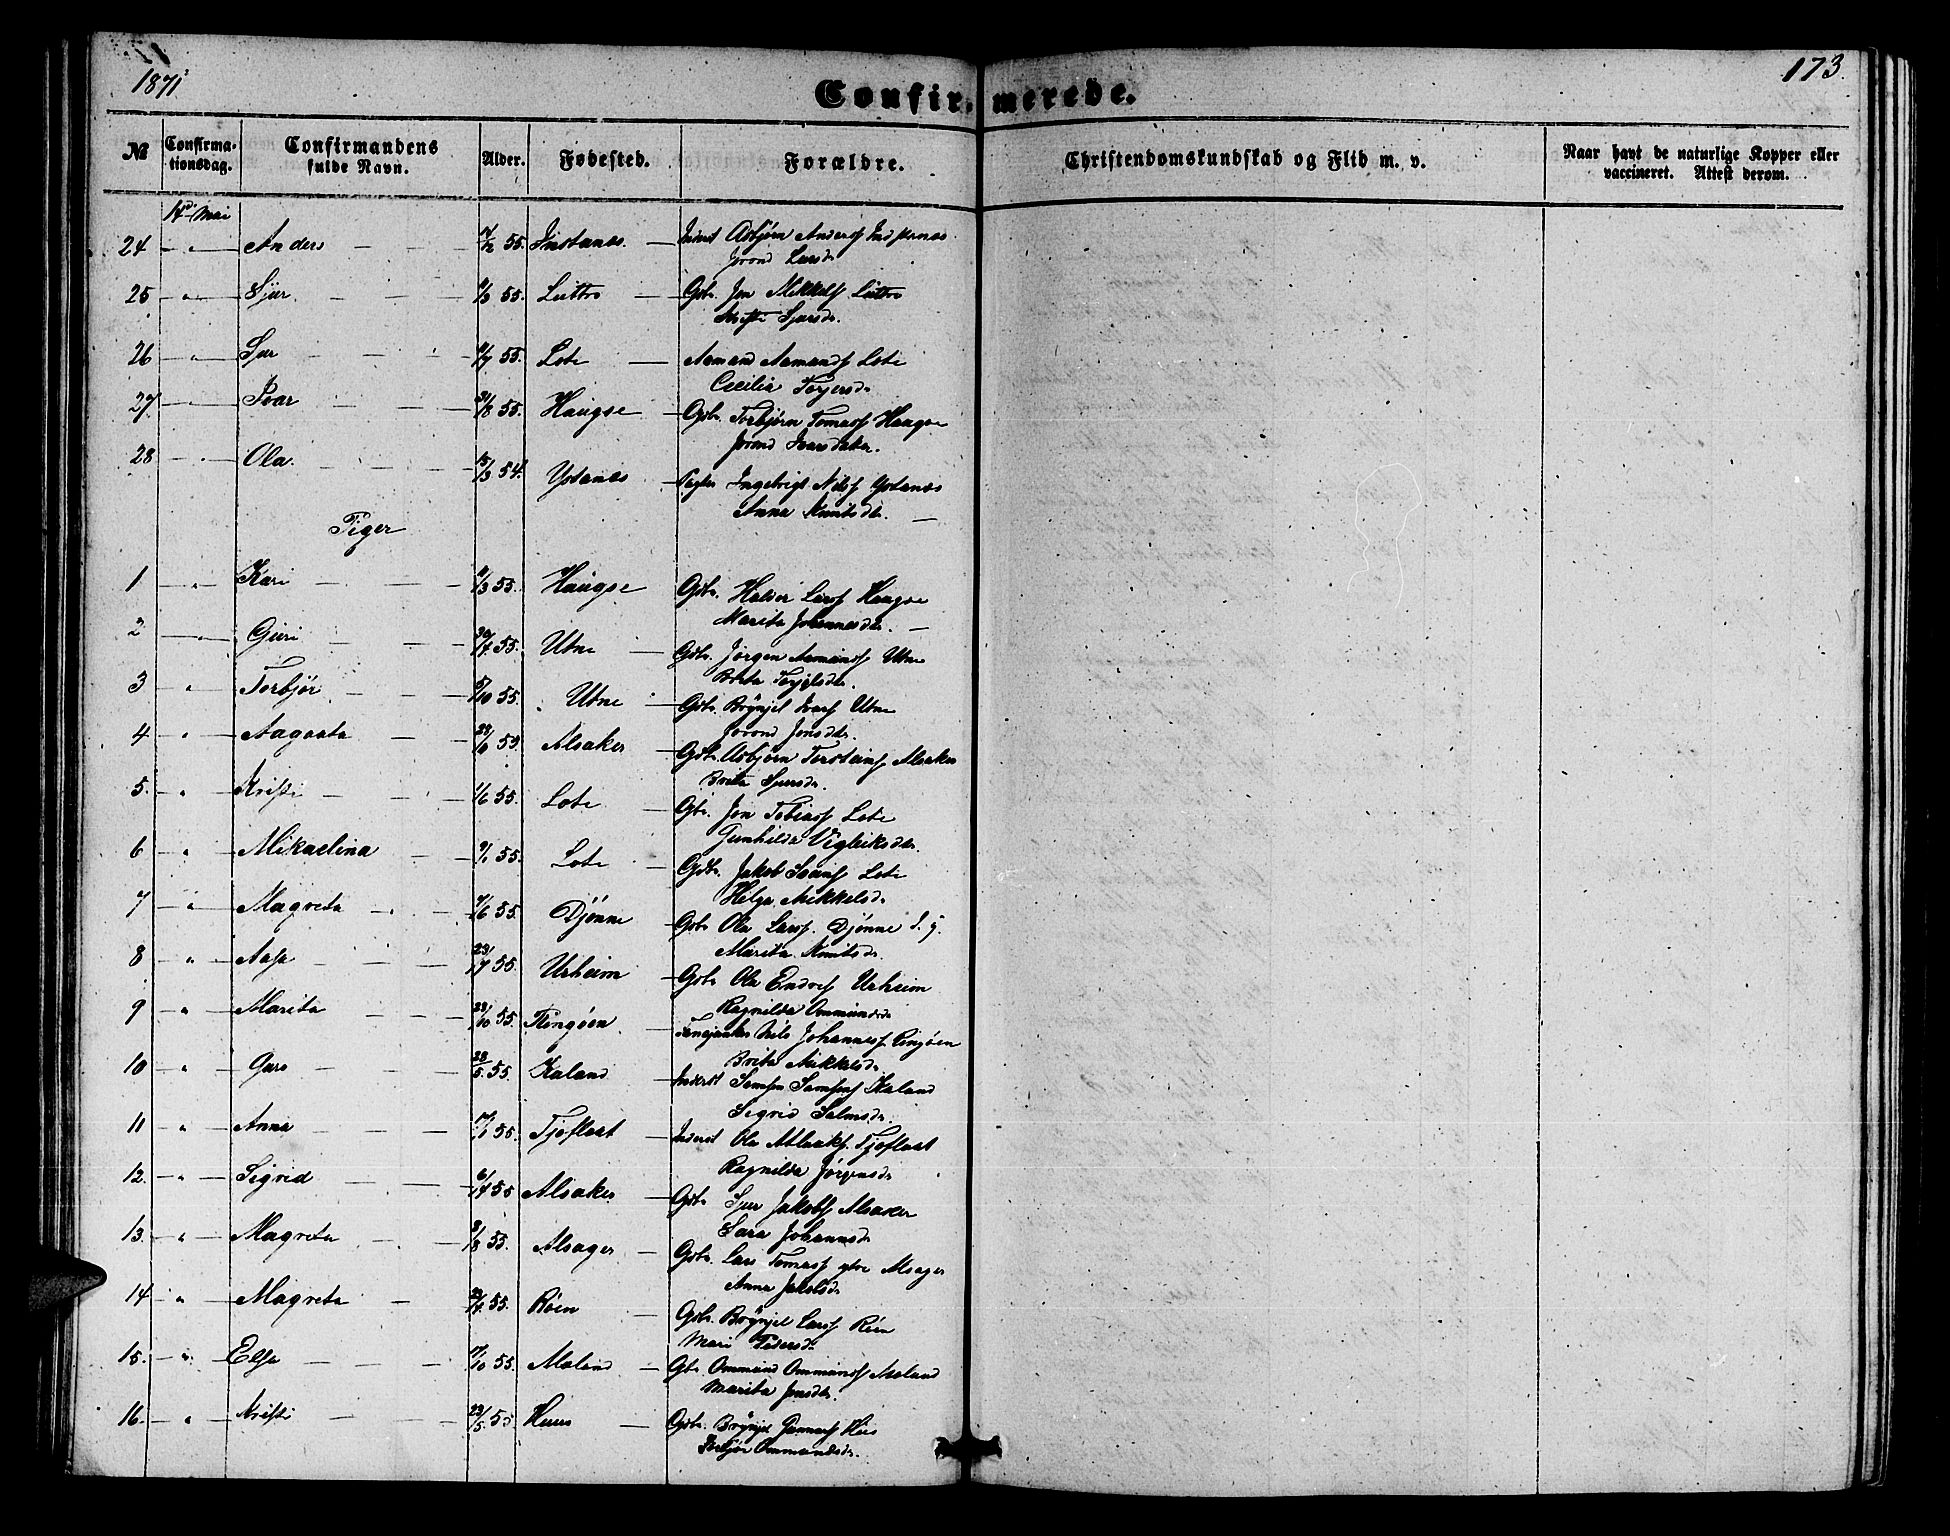 1871
173.
Confirmerede.
№ Confirmationsdag. Confirmandens fulde Navn. Alder. Fødested. Forældre. Christendomskundskab og Flid m. v. Naar havt de naturlige Kopper eller vaccineret. Attest derom.
14de Mai
24 " Anders 55. Instanæs. Inderst Asbjørn Anders
Jorond Larsdr
25 " Sjur 55. Luttro Gbr. Jon Mikkels Luttro
Kristi Sjursdr.
26 " Sjur 55. Lote Aamund Aamunds Lote
Cecilia
27 " Ivar 55. Haugse Gbr. Torbjørn Tomass Haugse
Jorond Ivarsdatter.
28 " Ola 54. Ystanæs Ingebrigt Nils Ystanæs
Anna Knutsdr.
Piger
1 " Kari 55. Haugse Gbr. Halvor Lars Haugse
Marita Johannesdr.
2 " Guri 55. Utne Gbr. Jørgen Aamunds Utne
Brita
3 " Torbjør 55. Utne Gbr. Brynjel Ivars Utne
Jorond Jonsdr.
4 " Aagaata 55. Alsaker Gbr. Asbjørn Torstains Alsaker
Brita Sjursdr.
5. " Kristi 1/6 55. Lote Gbr. Jon Tobias Lote
Gunhilda Vigleiksdr.
6 " Mikaelina 9/1 55. Lote Gbr. Jakob Lote
Helga Mikkelsdr
7 " Magreta 55. Djønne Gbr. Ola Lars. Djønne
Marita Knutsdr.
8 " Aasa 55. Urheim Gbr. Ola Endres Urheim
Ragnilda Ommundsdr
9 " Marita 23/10 55. Nils Johannes
Brita Mikkelsdr
10 " Guro 28/5 55. Kaland Inderst Samson Samsons Kaland
Sigrid Salmsdr.
11 " Anna 17/1 55. Tjoflaat Inderst Ola Aslaks Tjoflaat
Ragnilda Jørgensdr
12. " Sigrid 55 Alsaker Gbr. Sjur Jakobs Alsaker
Sara Johannsdr
13. " Magreta 55. Alsager Gbr. Lars Tomass ytre Alsager
Anna Jakobsdr
14 " Magreta 55. Røen Gbr. Brynjel Lars Røen
Mari Pedersdr
15. " Elsa 17/10 55. Maland Gbr. Ommund Ommunds Maland
Marita Jonsdr.
16. " Kristi 23/5 55 Huus Gbr. Brynjel Gunnars Hus
Torbjør Ommundsdr.